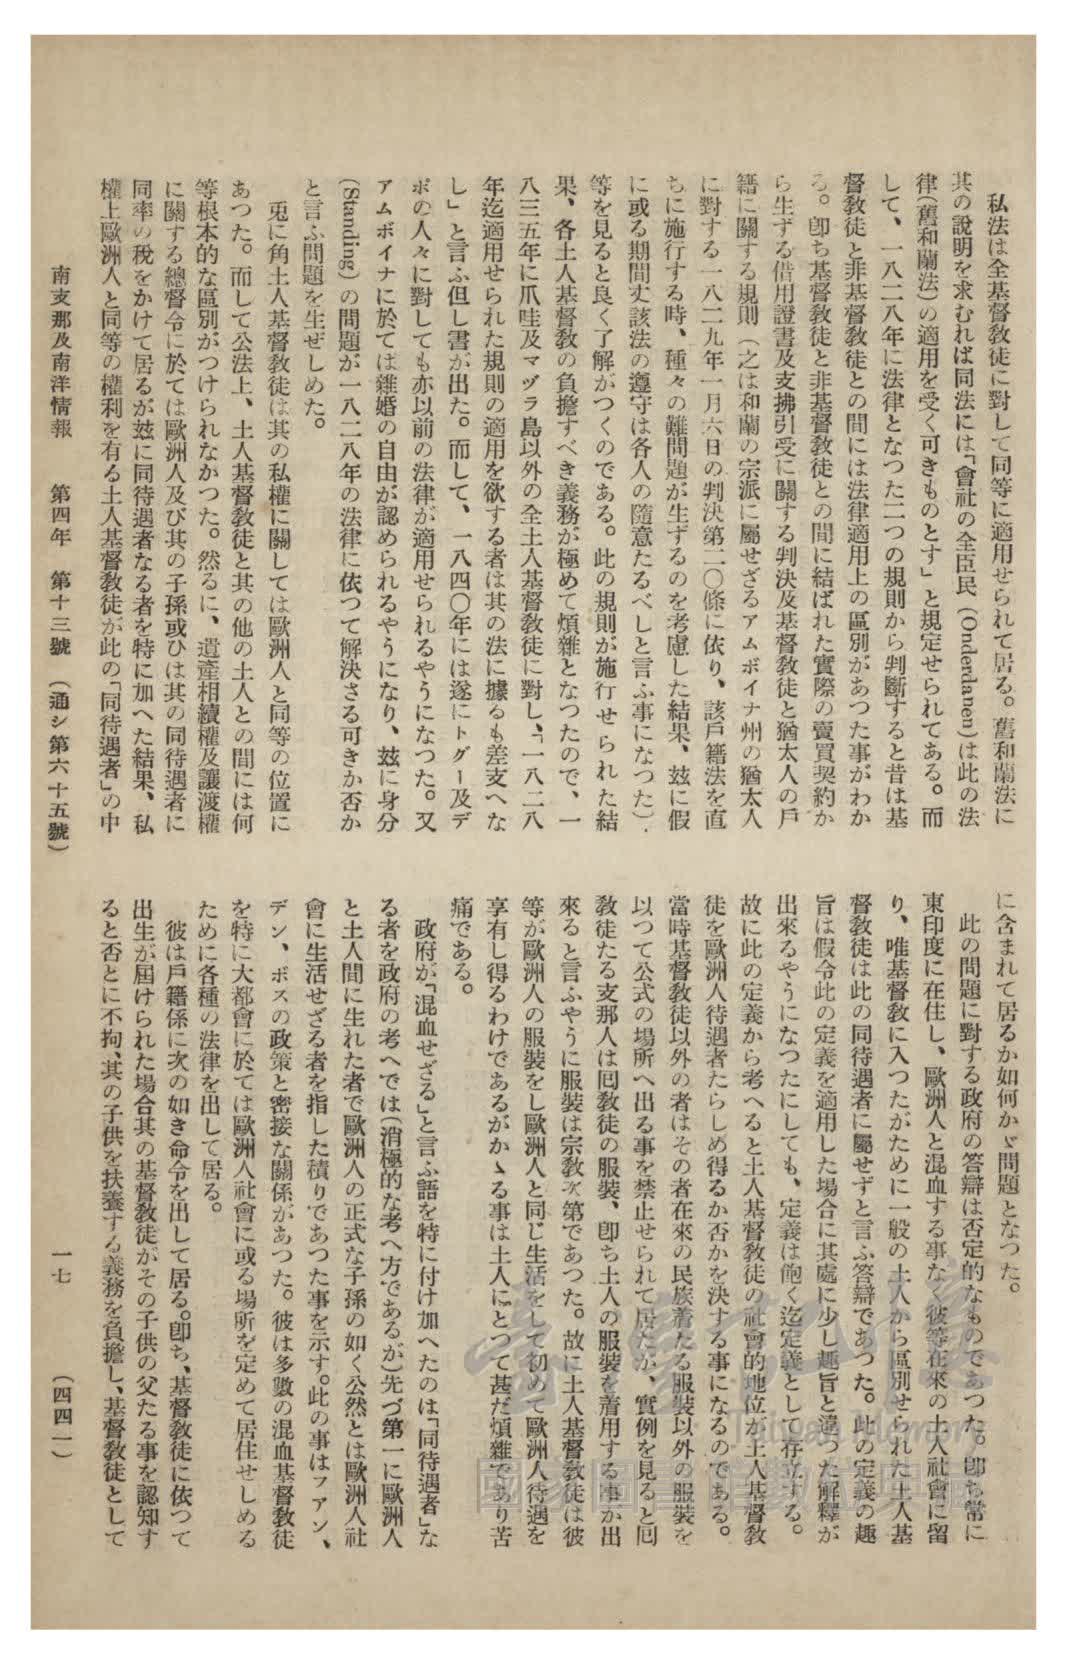 私法は全基督教徒に對して同等に適用せられて居る。舊和蘭法に
其の說明を求むれば同法には「會社の全臣民（Onderdanen）は此の法
律（舊和蘭法）の適用を受く可きものとす」と規定せられてある。而
して、一八二八年に法律となつた二つの規則から判斷すると昔は基
督教徒と非基督教徒との間には法律適用上の區別があつた事がわか
る。卽ち基督教徒と非基督教徒との間に結ばれた實際の賣買契約か
ら生ずる借用證書及支拂引受に關する判決及基督教徒と猶太人の戶
籍に關する規則（之は和蘭の宗派に屬せざるアムボイナ州の猶太人
に對する一八二九年一月六日の判決第二〇條に依り、該戶籍法を直
ちに施行する時、種々の難問題が生ずるのを考慮した結果、玆に假
に或る期間丈該法の遵守は各人の隨意たるべしと言ふ事になつた）.
等を見ると良く了解がつくのである。此の規則が施行せられた結
果、各土人基督教の負擔すべき義務が極めて煩雜となつたので、一
八三五年に爪哇及マヅラ島以外の全土人基督教徒に對し、「一八二八
年迄適用せられた規則の適用を欲する者は其の法に據るも差支へな
し」と言ふ但し書が出た。而して、一八四〇年には遂にトグー及デ
ポの人々に對しても亦以前の法律が適用せられるやうになつた。又
アムボイナに於ては雜婚の自由が認められるやうになり、玆に身分
（Standing）の問題が一八二八年の法律に依つて解決さる可きか否か
と言ふ問題を生ぜしめた。
兎に角土人基督教徒は其の私權に關しては歐洲人と同等の位置に
あつた。而して公法上、土人基督教徒と其の他の土人との間には何
等根本的な區別がつけられなかつた。然るに、遺產相續權及讓渡權
に關する總督令に於ては歐洲人及び其の子孫或ひは其の同待遇者に
同率の稅をかけて居るが玆に同待遇者なる者を特に加へた結果、私
權上歐洲人と同等の權利を有る土人基督教徒が此の「同待遇者」の中
に含まれて居るか如何かゞ問題となつた。
此の問題に對する政府の答辯は否定的なものであつた。卽ち常に
東印度に在住し、歐洲人と混血する事なく彼等在來の土人社會に留
り、唯基督教に入つたがために一般の土人から區別せられた土人基
督教徒は此の同待遇者に屬せずと言ふ答辯であつた。此の定義の趣
旨は假令此の定義を適用した場合に其處に少し趣旨と違つた解釋が
出來るやうになつたにしても、定義は飽く迄定義として存立する。
故に此の定義から考へると土人基督教徒の社會的地位が土人基督教
徒を歐洲人待遇者たらしめ得るか否かを決する事になるのである。
當時基督教徒以外の者はその者在來の民族着たる服裝以外の服裝を
以つて公式の場所へ出る事を禁止せられて居たが、實例を見ると囘
教徒たる支那人は囘教徒の服裝、卽ち土人の服裝を着用する事が出
來ると言ふやうに服裝は宗教次第であつた。故に土人基督教徒は彼
等が歐洲人の服裝をし歐洲人と同じ生活をして初めて歐洲人待遇を
享有し得るわけであるがかゝる事は土人にとつて甚だ煩雜であり苦
痛である。
政府が「混血せざる」と言ふ語を特に付け加へたのは「同待遇者」な
る者を政府の考へでは（消極的な考へ方であるが）先づ第一に歐洲人
と土人間に生れた者で歐洲人の正式な子孫の如く公然とは歐洲人社
會に生活せざる者を指した積りであつた事を示す。此の事はファン、
デン、ボスの政策と密接な關係があつた。彼は多數の混血基督教徒
を特に大都會に於ては歐洲人社會に或る場所を定めて居住せしめる
ために各種の法律を出して居る。
彼は戶籍係に次の如き命令を出して居る。卽ち、基督教徒に依つて
出生が屆けられた場合其の基督教徒がその子供の父たる事を認知す
ると否とに不拘、其の子供を扶養する義務を負擔し、基督教徒として
南支那及南洋情報　第四年　第十三號　（通シ第六十五號）　一七　（四四一）
臺灣記憶
Taiwan Memory
國家圖書館數位典藏